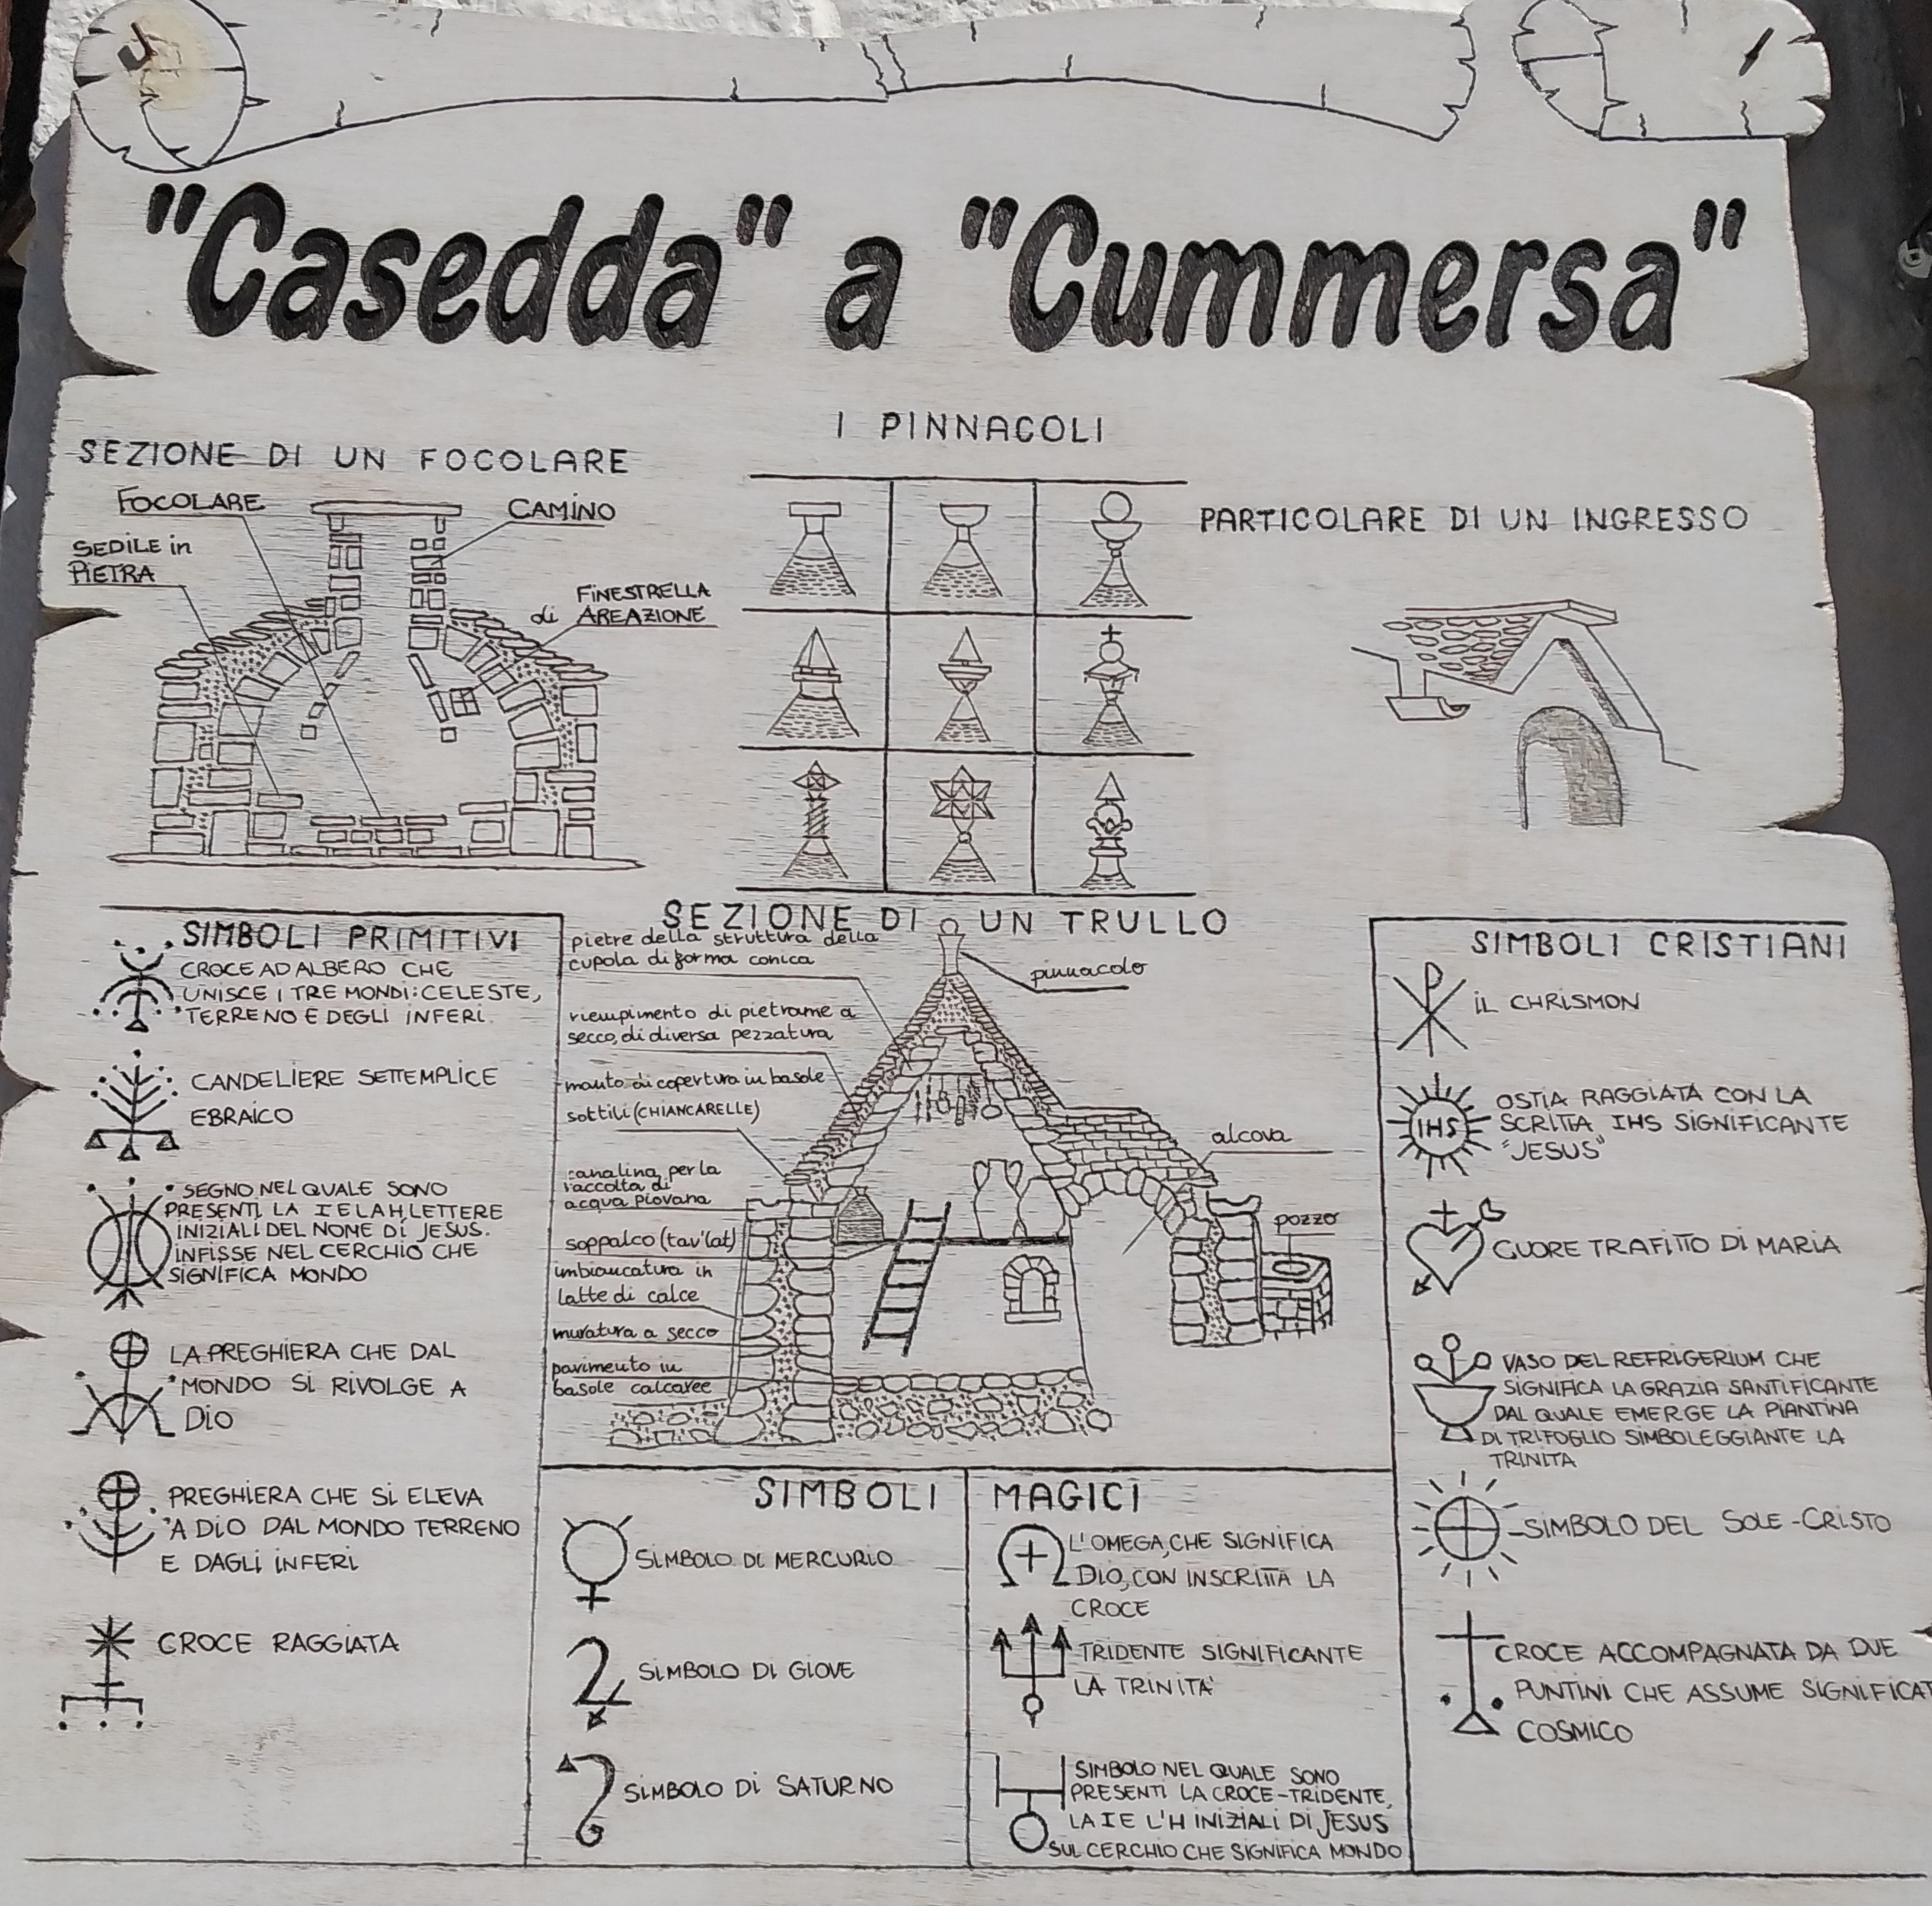 "Casedda" a "Cummersa"
SEZIONE DI UN FOCOLARE
FOCOLARE
CAMINO
SEDILE in
PIETRA
FINESTRELLA
di AREAZIONE
I PINNACOLI
PARTICOLARE DI UN INGRESSO
SIMBOLI PRIMITIVI
CROCE AD ALBERO CHE
UNISCE I TRE MONDI: CELESTE,
TERRENO E DEGLI INFERI.
CANDELIERE SETTEMPLICE
EBRAICO
SEGNO NEL QUALE SONO
PRESENTI LA I E LA H LETTERE
INIZIALI DEL NOME DI JESUS.
INFISSE NEL CERCHIO CHE
SIGNIFICA MONDO
LA PREGHIERA CHE DAL
MONDO SI RIVOLGE A
DIO
PREGHIERA CHE SI ELEVA
A DIO DAL MONDO TERRENO
E DAGLI INFERI
CROCE RAGGIATA
SEZIONE DI UN TRULLO
pietre della struttura della
cupola di forma conica
pinnacolo
riempimento di pietrame a
secco, di diversa pezzatura
manto di copertura in basole
sottili (CHIANCARELLE)
alcova
canalina per la
raccolta di
acqua piovana
pozzo
soppalco (tav'lat)
imbiancatura in
latte di calce
muratura a secco
pavimento in
basole calcaree
SIMBOLI MAGICI
SIMBOLO DI MERCURIO
SIMBOLO DI GIOVE
SIMBOLO DI SATURNO
L'OMEGA, CHE SIGNIFICA
DIO, CON INSCRITTA LA
CROCE
TRIDENTE SIGNIFICANTE
LA TRINITA'
SIMBOLO NEL QUALE SONO
PRESENTI LA CROCE-TRIDENTE,
LA I E L'H INIZIALI DI JESUS
SUL CERCHIO CHE SIGNIFICA MONDO
SIMBOLI CRISTIANI
IL CHRISMON
IHS
OSTIA RAGGIATA CON LA
SCRITTA IHS SIGNIFICANTE
"JESUS"
CUORE TRAFITTO DI MARIA
VASO DEL REFRIGERIUM CHE
SIGNIFICA LA GRAZIA SANTIFICANTE
DAL QUALE EMERGE LA PIANTINA
DI TRIFOGLIO SIMBOLEGGIANTE LA
TRINITA
SIMBOLO DEL SOLE-CRISTO
CROCE ACCOMPAGNATA DA DUE
PUNTINI CHE ASSUME SIGNIFICAT
COSMICO